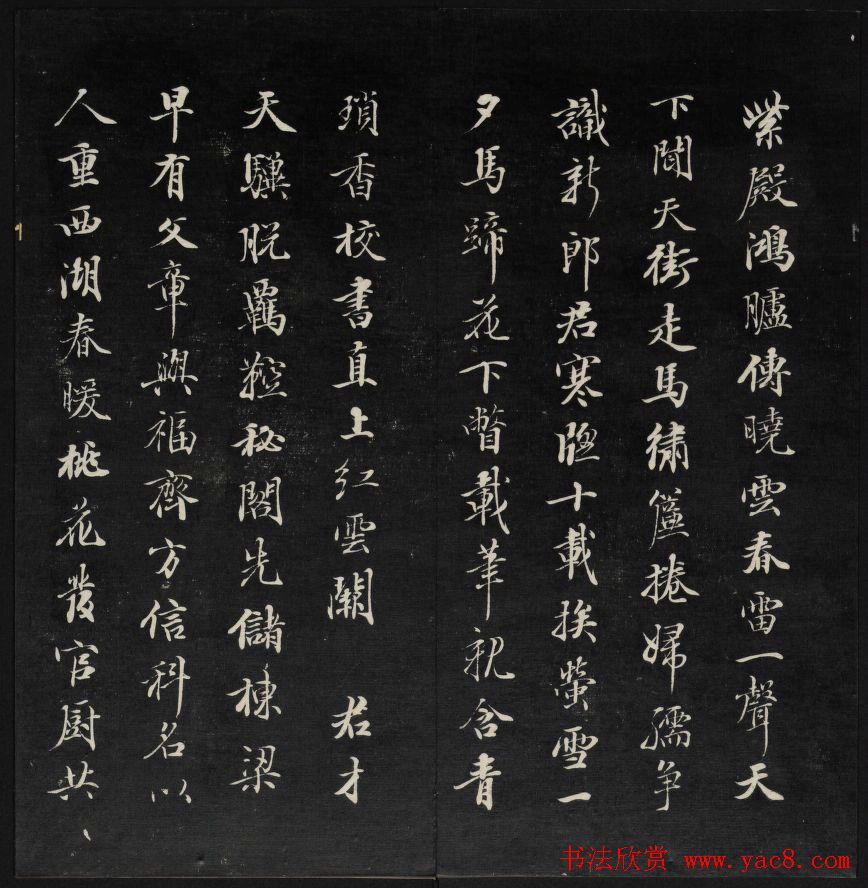 紫殿鴻臚傳曉雲春雷一聲天
下聞天街走馬繡簾捲婦孺争
識新郎君寒牕十載挨螢雪一
夕馬蹄花下瞥載筆親含青
瑣香校書直上紅雲闕 君才
天驥脱羈鞚秘閣先儲棟梁
早有文章與福齊方信科名以
人重西湖春暖桃花發官厨共
书法欣赏 www.yac8.com